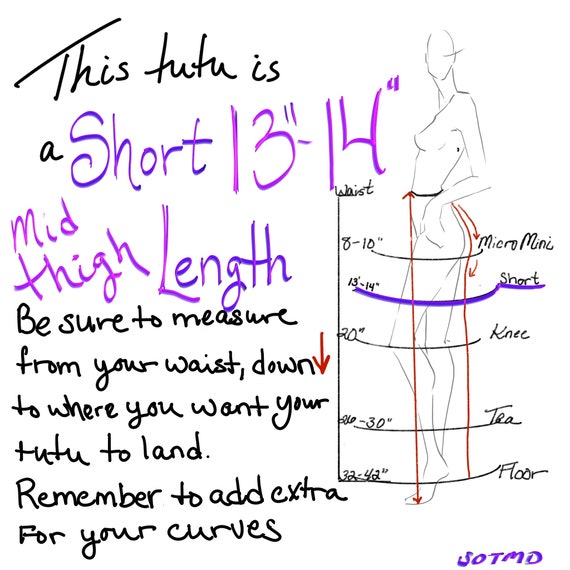 This tutu is
a Short 13"-14"
Mid
thigh Length
Be sure to measure
from your waist, down
to where you want your
tutu to land.
Remember to add extra
For your curves
Waist
8-10" Micro Mini
13"-14" Short
20" Knee
26-30" Tea
32-42" Floor
SOTMD